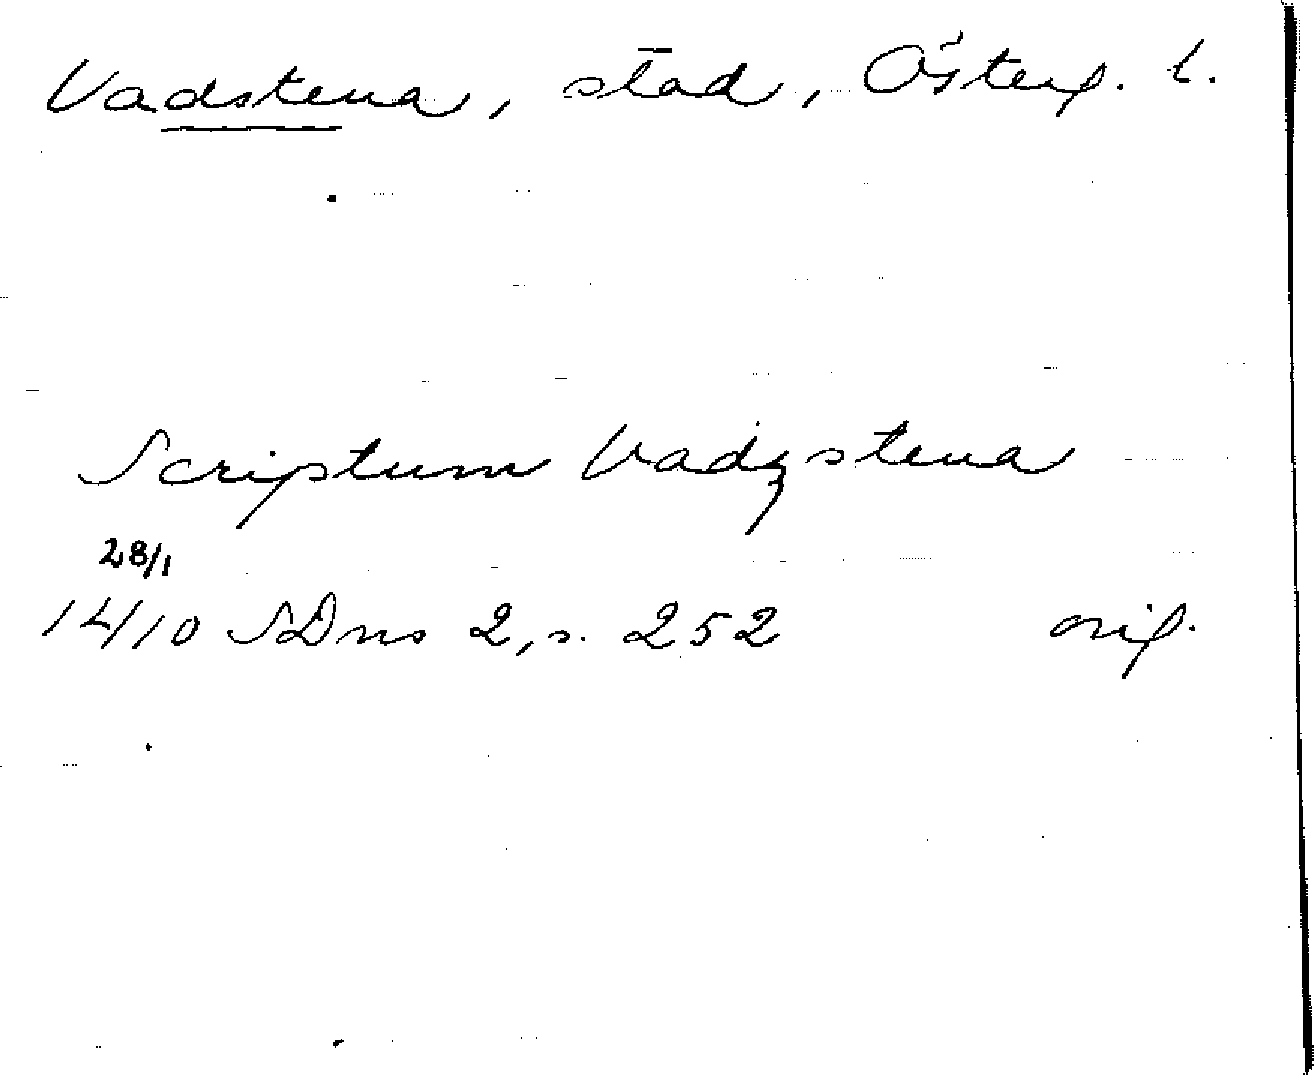 Vadstena, stad, Österg. l.
Scriptum Vadzstena
28/1
14/10 SDns 2, s. 252 orig.